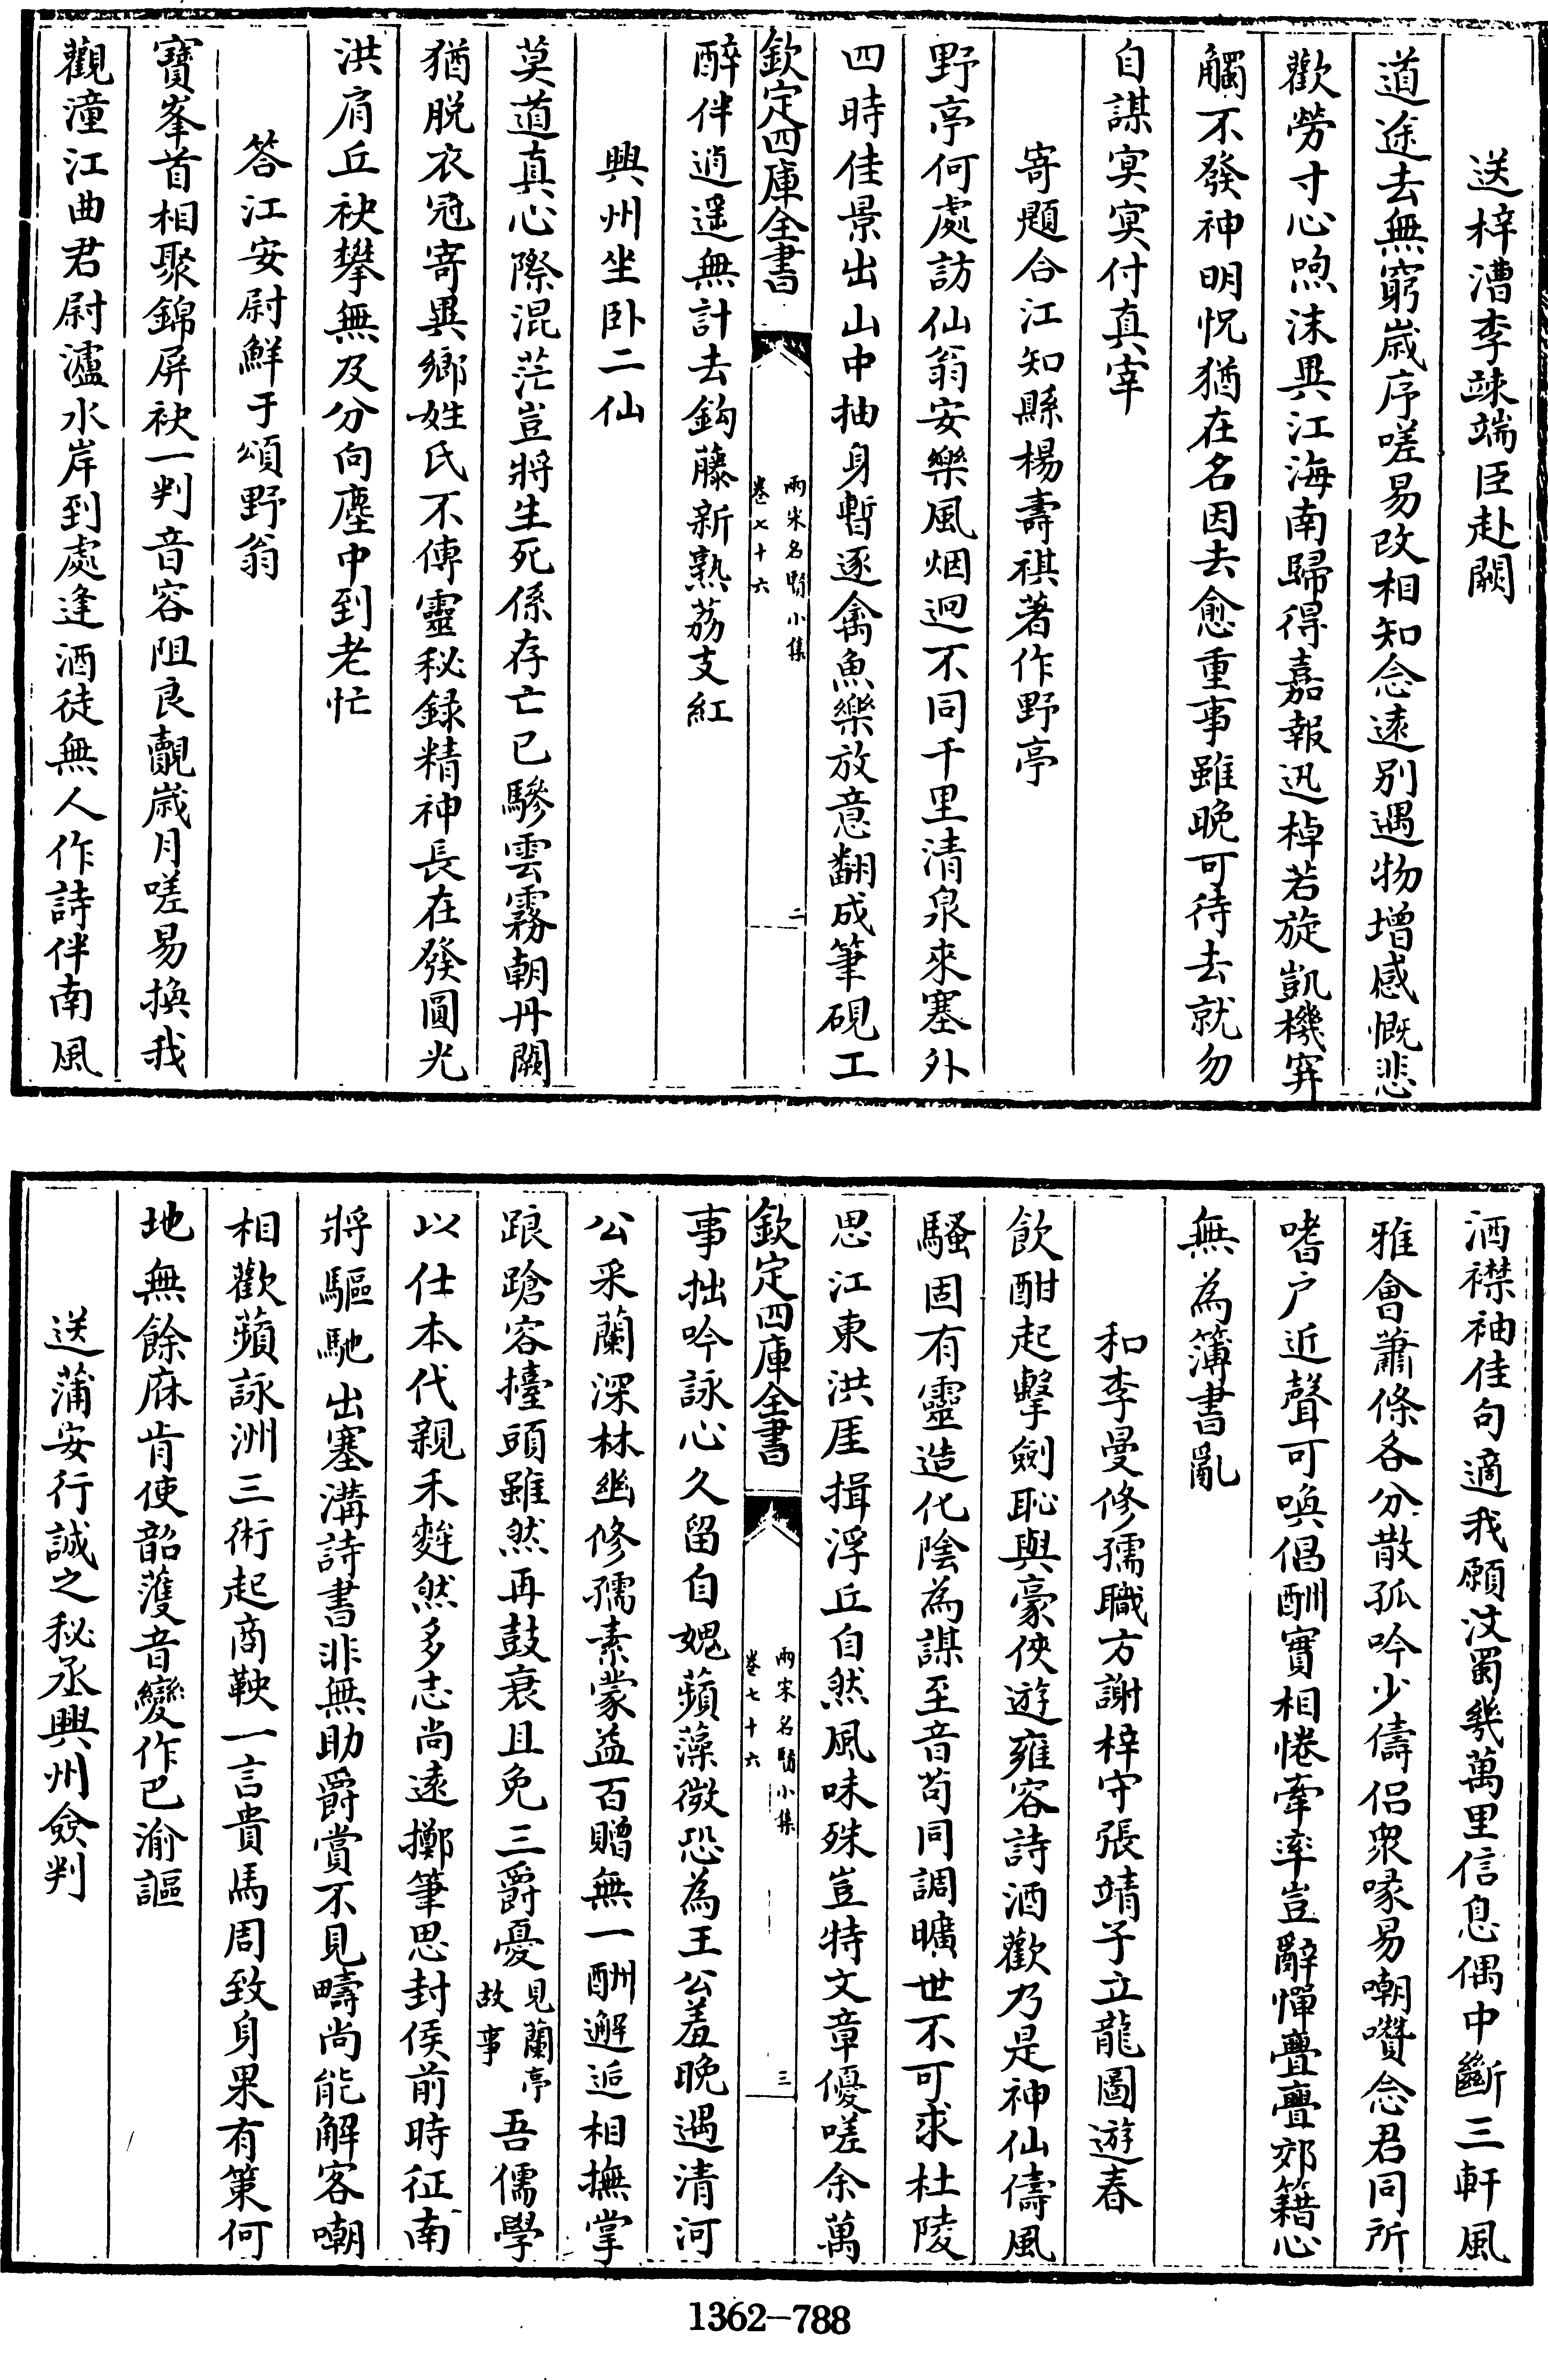 送梓漕李竦端臣赴闕
道途去無窮歲序嗟易改相知念遠别遇物增感慨悲
歡勞寸心呴沫異江海南歸得嘉報迅棹若旋凱機穽
觸不發神明怳猶在名因去愈重事雖晚可待去就勿
自謀冥冥付真宰
寄題合江知縣楊壽祺著作野亭
野亭何處訪仙翁安樂風烟迥不同千里清泉來塞外
四時佳景出山中抽身暫逐禽魚樂放意翻成筆硯工
欽定四庫全書
兩宋名賢小集
卷七十六
二
醉伴逍遥無計去鈎藤新熟荔支紅
興州坐卧二仙
莫道真心際混茫豈將生死係存亡已驂雲霧朝丹闕
猶脱衣冠寄異鄉姓氏不傳靈秘録精神長在發圓光
洪肩丘袂攀無及分向塵中到老忙
答江安尉鮮于頌野翁
寶峯首相聚錦屏袂一判音容阻良覿歲月嗟易換我
觀潼江曲君尉瀘水岸到處逢酒徒無人作詩伴南風
洒襟袖佳句適我願汶蜀幾萬里信息偶中斷三軒風
雅會蕭條各分散孤吟少儔侣衆喙易嘲讚念君同所
嗜户近聲可喚倡酬實相惓牽率豈辭憚亹亹郊籍心
無為簿書亂
和李曼修孺職方謝梓守張靖子立龍圖遊春
飲酣起擊劍恥與豪俠遊雍容詩酒歡乃是神仙儔風
騷固有靈造化陰為謀至音苟同調曠世不可求杜陵
思江東洪厓揖浮丘自然風味殊豈特文章優嗟余萬
欽定四庫全書
兩宋名賢小集
卷七十六
三
事拙吟詠心久留自媿蘋藻微恐為王公羞晚遇清河
公采蘭深林幽修孺素蒙益百贈無一酬邂逅相撫掌
踉蹌容擡頭雖然再鼓衰且免三爵憂見蘭亭故事吾儒學
以仕本代親禾麰然多志尚遠擲筆思封侯前時征南
將驅馳出塞溝詩書非無助爵賞不見疇尚能解客嘲
相歡蘋詠洲三術起商鞅一言貴馬周致身果有策何
地無餘庥肯使韶頀音變作巴渝謳
送蒲安行誠之秘丞興州僉判
1362-788